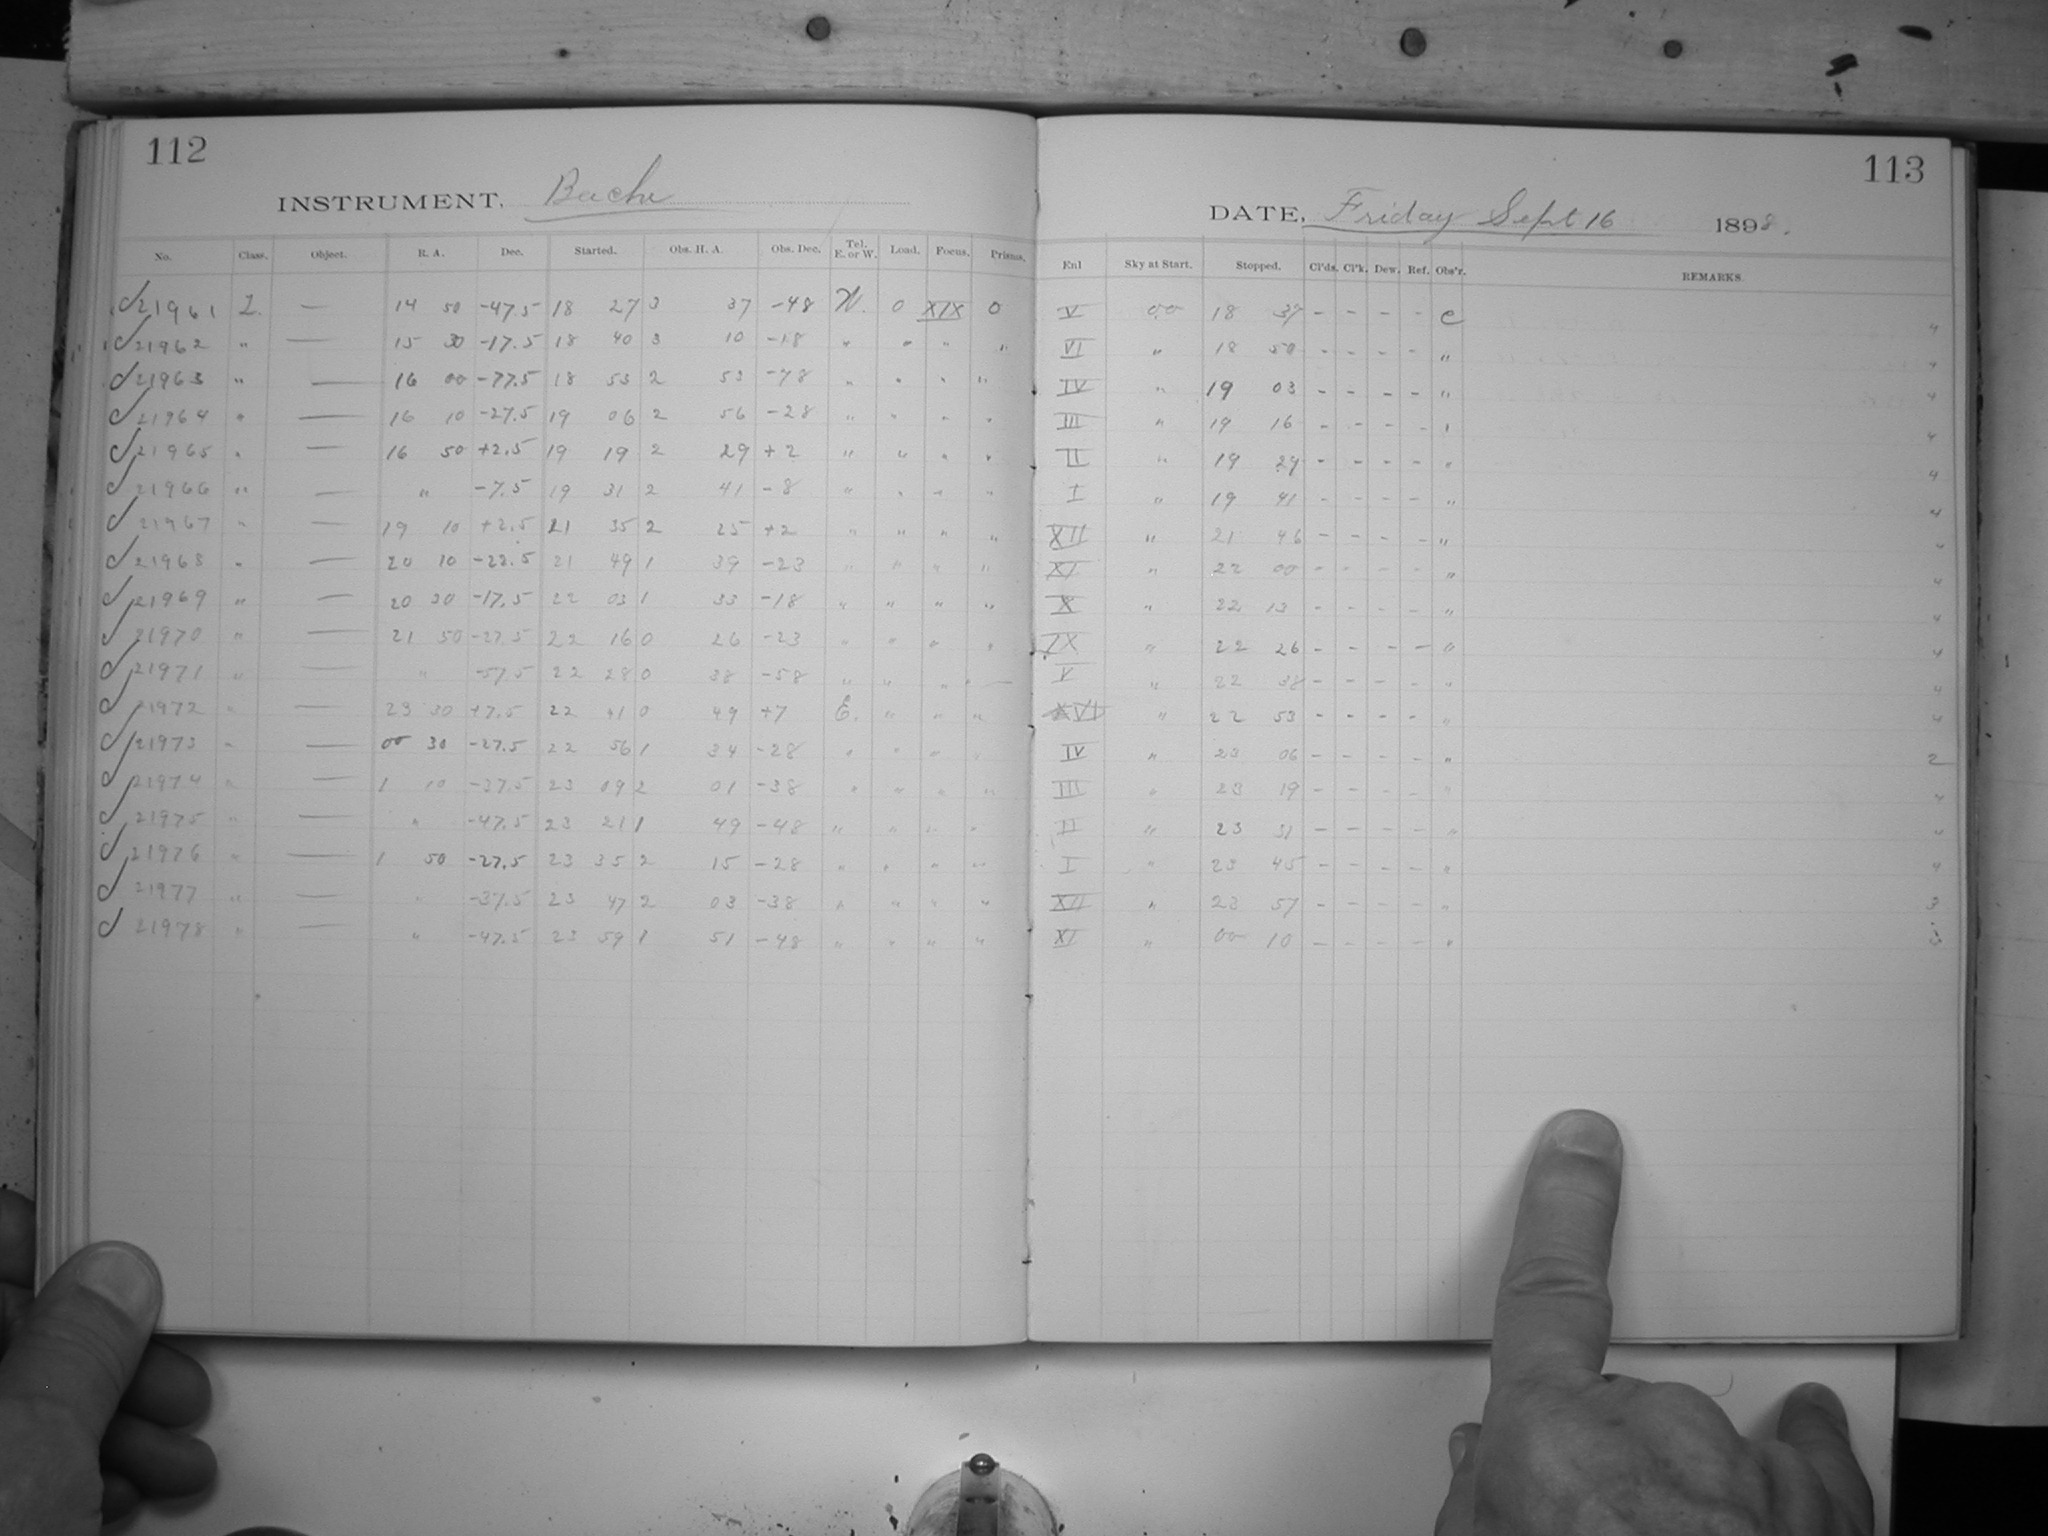 112
INSTRUMENT. Bache
No. Class. Object. R. A. Dec. Started. Obs. H. A. Obs. Dec. Tel. E. or W. Load. Focus. Prisms.
21961 L — 14 50 -47.5 18 27 3 37 -48 W. 0 XIX 0
21962 " — 15 30 -17.5 18 40 3 10 -18 " " " "
21963 " — 16 00 -77.5 18 53 2 53 -78 " " " "
21964 " — 16 10 -27.5 19 06 2 56 -28 " " " "
21965 " — 16 50 +2.5 19 19 2 29 +2 " " " "
21966 " — " -7.5 19 31 2 41 -8 " " " "
21967 " — 19 10 +2.5 21 35 2 25 +2 " " " "
21968 " — 20 10 -22.5 21 49 1 39 -23 " " " "
21969 " — 20 30 -17.5 22 03 1 33 -18 " " " "
21970 " — 21 50 -22.5 22 16 0 26 -23 " " " "
21971 " — " -57.5 22 28 0 38 -58 " " " "
21972 " — 23 30 +7.5 22 41 0 49 +7 E. " " "
21973 " — 00 30 -27.5 22 56 1 34 -28 " " " "
21974 " — 1 10 -37.5 23 09 2 01 -38 " " " "
21975 " — " -47.5 23 21 1 49 -48 " " " "
21976 " — 1 50 -27.5 23 35 2 15 -28 " " " "
21977 " — " -37.5 23 47 2 03 -38 " " " "
21978 " — " -47.5 23 59 1 51 -48 " " " "
113
DATE, Friday Sept 16 1898.
Enl Sky at Start. Stopped. Cl'ds. Cl'k. Dew. Ref. Obs'r. REMARKS.
V 00 18 37 - - - - C 4
VI " 18 50 - - - - " 4
IV " 19 03 - - - - " 4
III " 19 16 - - - - " 4
II " 19 29 - - - - " 4
I " 19 41 - - - - " 4
XII " 21 46 - - - - " 4
XI " 22 00 - - - - " 4
X " 22 13 - - - - " 4
IX " 22 26 - - - - " 4
V " 22 38 - - - - " 4
22 53 - - - - " 4
IV " 23 06 - - - - " 2
III " 23 19 - - - - " 4
II " 23 31 - - - - " 4
I " 23 45 - - - - " 4
XII " 23 57 - - - - " 3
XI " 00 10 - - - - " 3